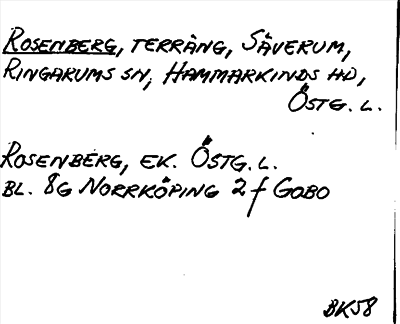 ROSENBERG, TERRÄNG, SÄVERUM,
RINGARUMS SN, HAMMARKINDS HD,
ÖSTG. L.
ROSENBERG, EK. ÖSTG. L.
BL. 8G NORRKÖPING 2 f GOBO
BK58